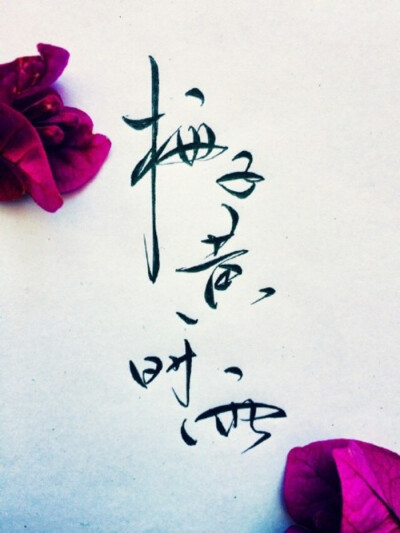 梅子黄时雨